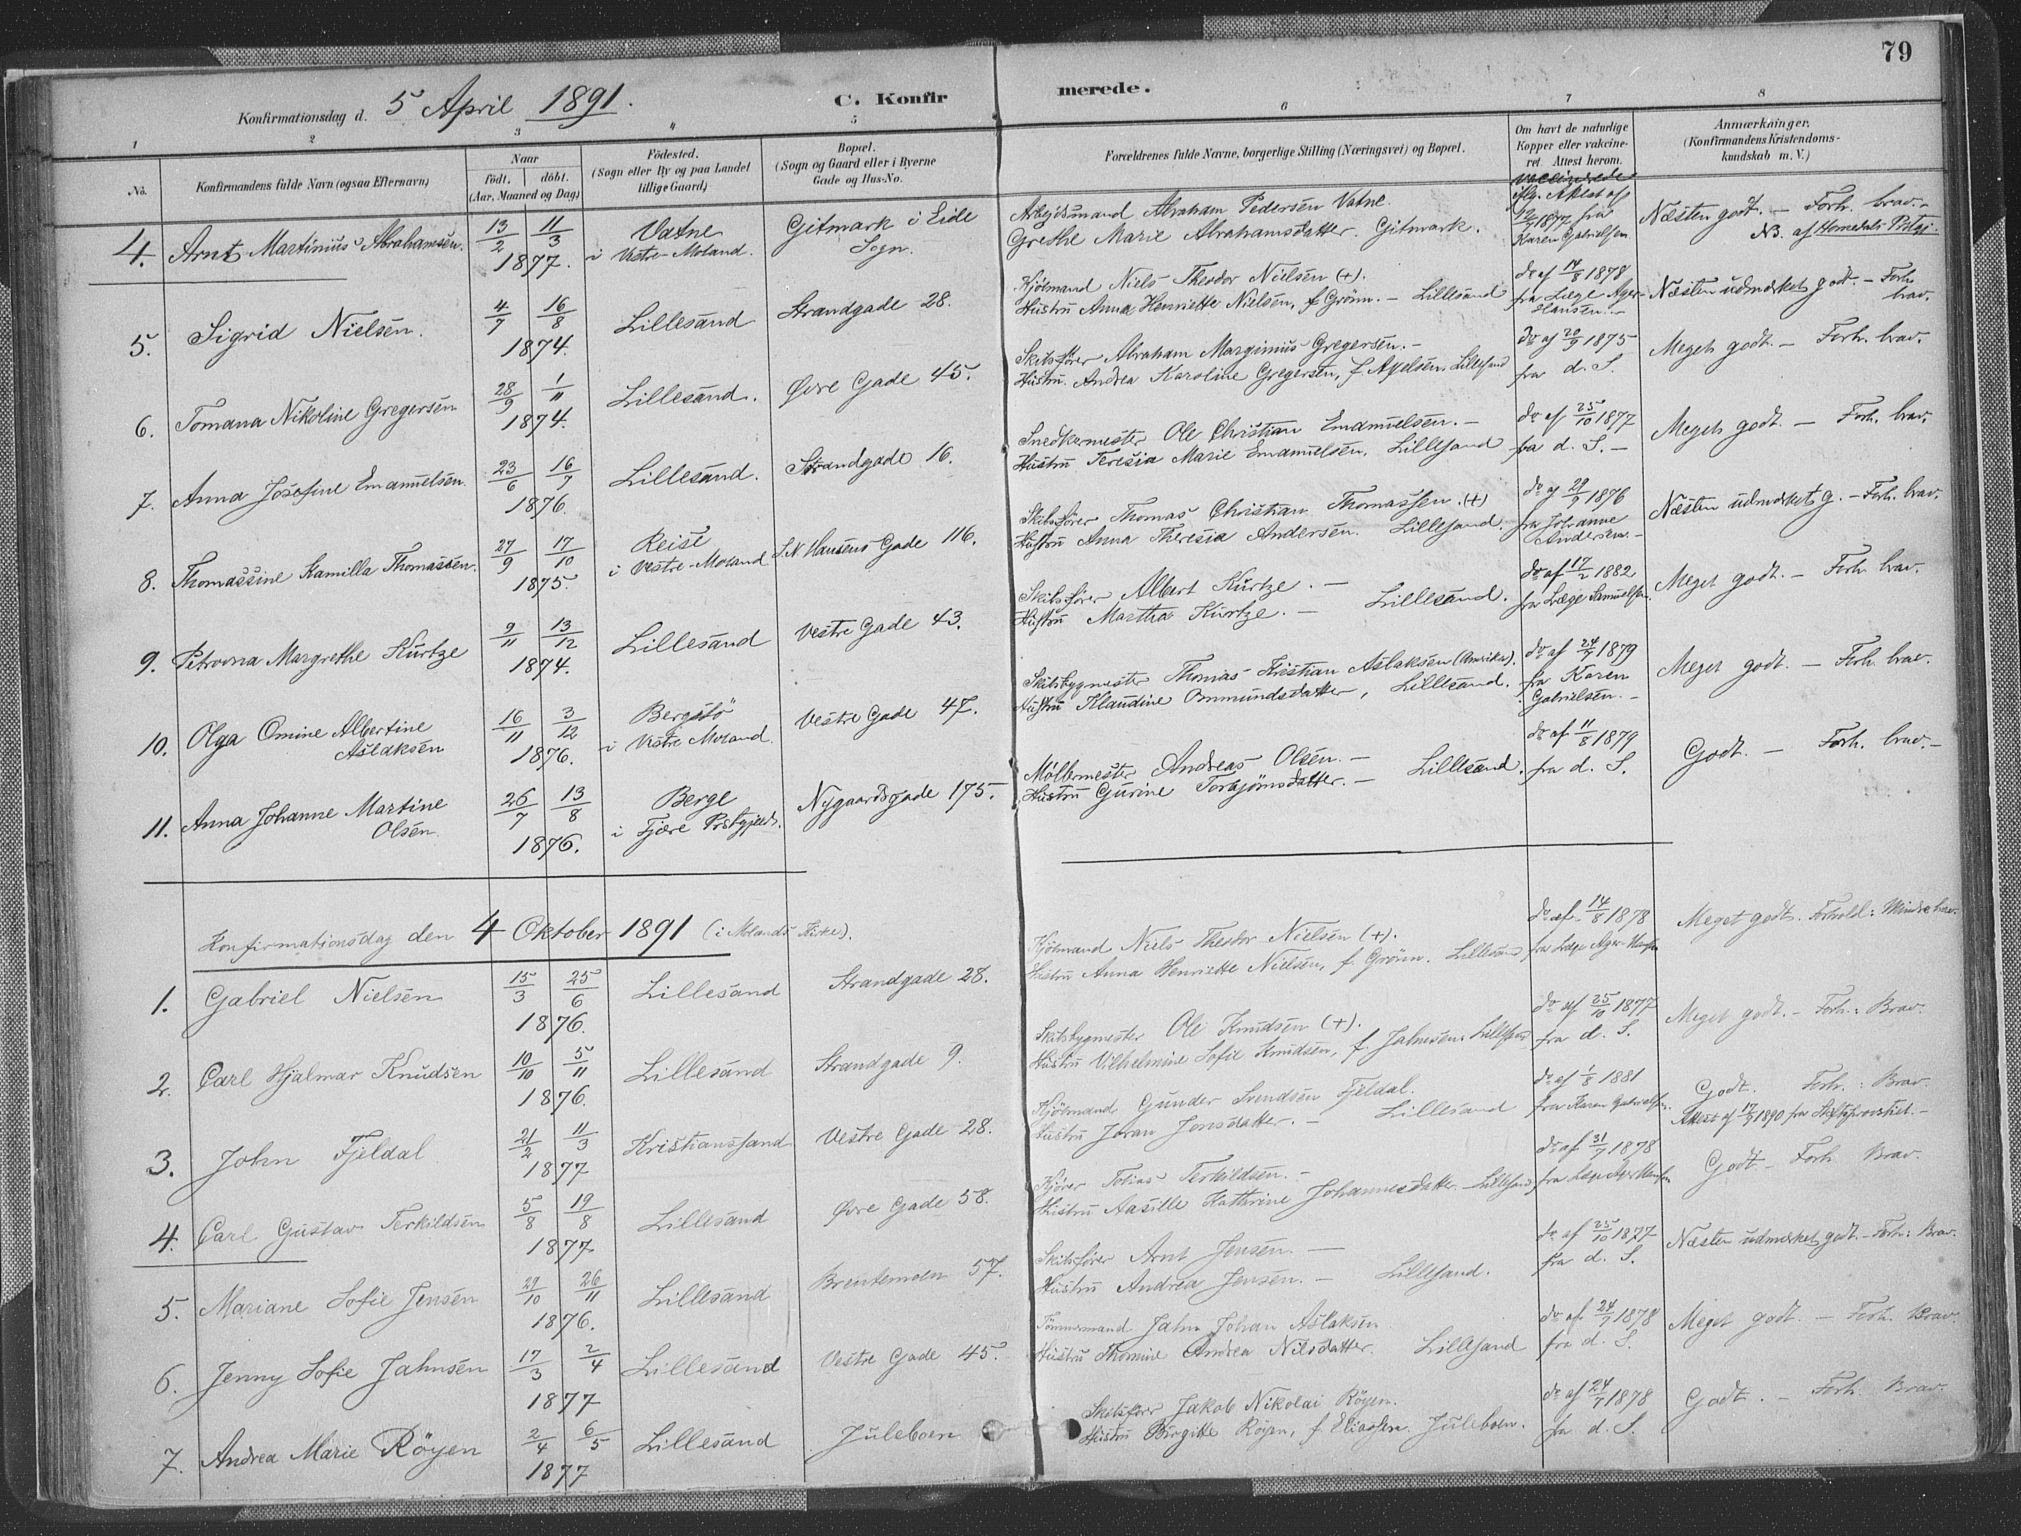 79
Konfirmationsdag d. 5 April 1891. C. Konfirmerede.
1 2 3 4 5 6 7 8
No. Konfirmandens fulde Navn (ogsaa Efternavn)
Naar født. døbt. (Aar, Maaned og Dag)
Födested. (Sogn eller By og paa Landet tillige Gaard)
Bopæl. (Sogn og Gaard eller i Byerne Gade og Hus-No.
Forældrenes fulde Navne, borgerlige Stilling (Næringsvei) og Bopæl.
Om havt de naturlige Kopper eller vaccineret. Attest herom.
Anmærkninger. (Konfirmandens Kristendomskundskab m. V.)
4. Arnt Martinius Abrahamsen. 13/2 11/3 1877. Vatne i Vestre-Moland. Gitmark i Eide Sogn.
Arbejdsmand Abraham Pedersen Vatne.
Grethe Marie Abrahamsdatter. Gitmark.
Vaccinerede iflg. Attest af 1877 fra Karen Gabrielsen
Næsten godt. – Forh. brav. –
NB. af Homedals Prstgj.
5. Sigrid Nielsen. 4/7 16/8 1874. Lillesand Strandgade 28.
Kjöbmand Niels Theodor Nielsen (+).
Hustru Anna Henriette Nielsen, f. Grönn. – Lillesand
do af 14/8 1878 fra Læge Ager-Hansen. –
Næsten udmærket godt. – Forh. brav.
6. Tomana Nikoline Gregersen 28/9 1/11 1874. Lillesand. Øvre Gade 45.
Skibsfører Abraham Marginius Gregersen. –
Hustru Andrea Karoline Gregersen, f. Axelsen. Lillesand
do af 20/9 1875 fra d. S.
Meget godt. – Forh. brav.
7. Anna Josefine Emanuelsen. 23/6 16/7 1876. Lillesand. Strandgade 16.
Snedkermester Ole Christian Emanuelsen. –
Hustru Teresia Marie Emanuelsen. Lillesand
do af 25/10 1877 fra d. S. –
Meget godt. – Forh. brav.
8. Thomassine Kamilla Thomassen. 27/9 17/10 1875. Reise i Vestre-Moland S. N. Hansens Gade 116.
Skibsfører Thomas Christian Thomassen. (+)
Hustru Anna Theresia Andersen. Lillesand.
do af 29/9 1876 fra Johanne Andersen. –
Næsten udmærket g. – Forh. brav.
9. Petrovna Margrethe Kürtze 9/11 13/12 1874. Lillesand Vestre Gade 43.
Skibsfører Albert Kürtze. –
Hustru Martha Kürtze. – Lillesand.
do af 17/2 1882 fra Læge Samuelsen.
Meget godt. – Forh. brav.
10. Olga Omine Albertine Aslaksen 16/11 3/12 1876. Bergstö i Vestre Moland. Vestre Gade 47.
Skibsbygmester Thomas Kristian Aslaksen (Amerika).
Hustru Klaudine Ommundsdatter, Lillesand.
do af 24/7 1879 fra Karen Gabrielsen. –
Meget godt. – Forh. brav.
11. Anna Johanne Martine Olsen. 26/7 13/8 1876. Berge i Fjære Prstgjeld. Nygaardsgade 175.
Møllermester Andreas Olsen. –
Hustru Gurine Torbjörnsdatter. – Lillesand.
do af 11/8 1879 fra d. S.
Godt. – Forh. brav. –
Konfirmationsdag den 4 Oktober 1891 (i Molands Kirke).
1. Gabriel Nielsen 15/3 25/6 1876. Lillesand Strandgade 28.
Kjöbmand Niels Theodor Nielsen (+).
Hustru Anna Henriette Nielsen, f. Grönn. Lillesand
do af 14/8 1878 fra Læge Ager-Hansen
Meget godt. Forhold: Mindre brav.
2. Carl Hjalmar Knudsen 10/10 5/11 1876. Lillesand Strandgade 9.
Skibsbygmester Ole Knudsen (+).
Hustru Vilhelmine Sofie Knudsen, f. Jahnsen. Lillesand
do af 25/10 1877 fra d. S.
Meget godt. – Forh.: Brav.
3. John Fjeldal 21/2 11/3 1877 Kristianssand Vestre Gade 28.
Kjöbmand Gunder Svendsen Fjeldal.
Hustru Joran Jonsdatter. – Lillesand
do af 1/8 1881 fra Karen Gabrielsen.
Godt. Forh.: Brav.
Attest af 1890 fra Stiftsprovstiet. –
4. Carl Gustav Terkildsen 5/8 19/8 1877 Lillesand Øvre Gade 58.
Kjører Tobias Terkildsen. –
Hustru Aasille Kathrine Johannesdatter Lillesand
do af 31/7 1878 fra Læge Ager Hansen
Godt – Forh. Brav.
5. Mariane Sofie Jensen 29/10 26/11 1876. Lillesand Brentemoen 57.
Skibsfører Arnt Jensen. –
Hustru Andrea Jensen. – Lillesand.
do af 25/10 1877 fra d. S.
Næsten udmærket godt. – Forh: Brav.
6. Jenny Sofie Jahnsen 17/3 2/4 1877 Lillesand Vestre Gade 45.
Tömmermand Jahn Johan Aslaksen
Hustru Thomine Andrea Nilsdatter. Lillesand
do af 24/7 1878 fra d. S.
Meget godt. – Forh. Brav.
7. Andrea Marie Röyen 2/4 6/5 1877 Lillesand Juleboen
Skibsfører Jakob Nikolai Röyen.
Hustru Birgitte Röyen, f. Eliassen. Juleboen.
do af 24/7 1878 fra d. S.
Godt. – Forh. Brav.